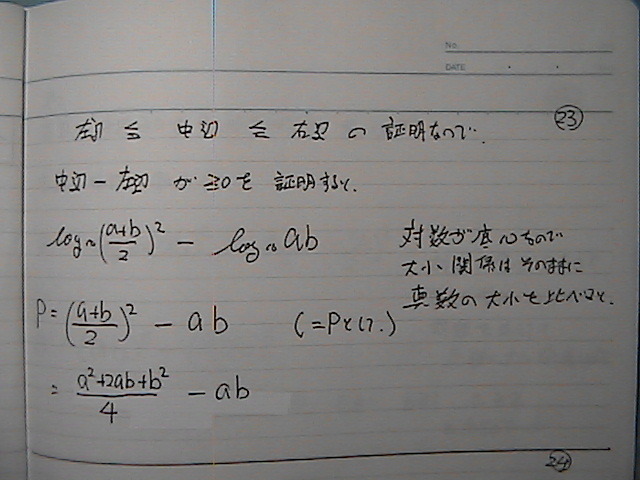 No.
DATE
㉓
左辺 ≦ 中辺 ≦ 右辺 の 証明なので.
中辺 − 左辺 が ≧0 を 証明すると.
log₁₀((a+b)/2)² − log₁₀ab
対数が底10なので
大小関係はそのままに
真数の大小を比べると.
P = ((a+b)/2)² − ab (=Pとして.)
= (a²+2ab+b²)/4 − ab
㉔